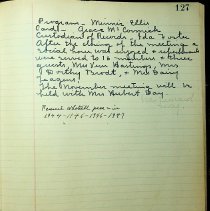 127
Program - Minnie Ellis
Card - Grace McCormick
Custodian of Records, Ida
After the closing of the meeting a
social hour was enjoyed & refreshments
were served to 16 members & three
guests, Mrs Hastings, Mrs
Dorothy Trodt, & Mrs Daisy
Teagins.
The November meeting will be
held with Mrs Hubert Day
in
1944-1945-1946-1947